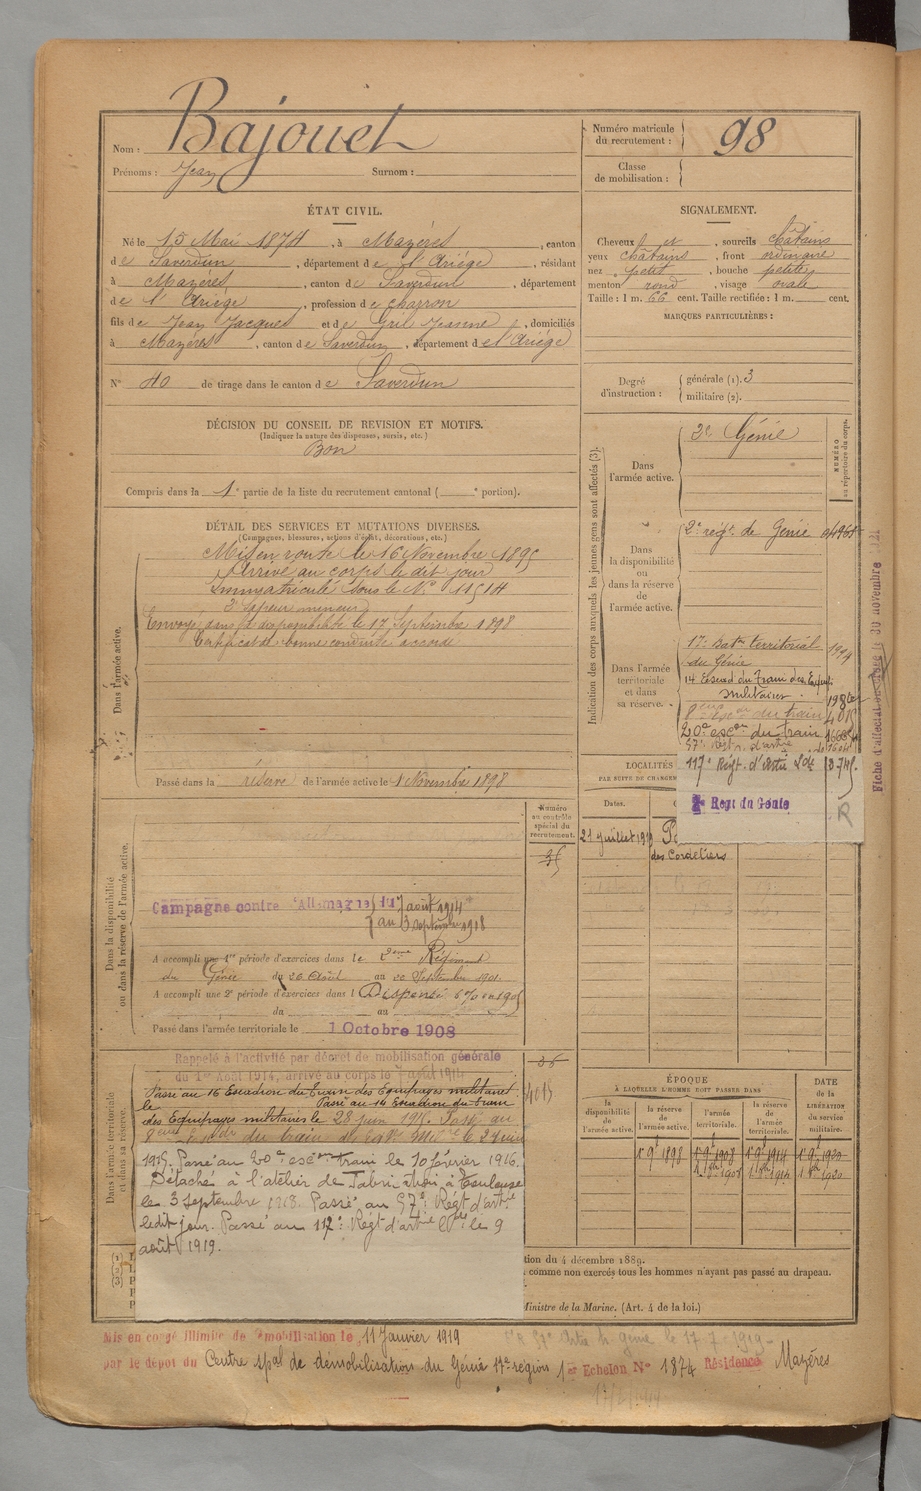 Nom : Bajouet
Prénoms : Jean Surnom :
ÉTAT CIVIL.
Né le 15 Mai 1874, à Mazéres, canton
de Saverdun, département de l'Ariége, résidant
à Mazéres, canton de Saverdun, département
de l'Ariege, profession de charron
fils de Jean Jacques et de Gril Jeanne, domiciliés
à Mazéres, canton de Saverdun, département de l'Ariége
N° 40 de tirage dans le canton de Saverdun
DÉCISION DU CONSEIL DE REVISION ET MOTIFS.
(Indiquer la nature des dispenses, sursis, etc.)
Bon
Compris dans la 1e partie de la liste du recrutement cantonal ( e portion).
DÉTAIL DES SERVICES ET MUTATIONS DIVERSES.
(Campagnes, blessures, actions d'éclat, décorations, etc.)
Dans l'armée active.
Mis en route le 16 Novembre 1895
Arrivé au corps le dit jour
Immatriculé sous le N° 11514
2e Sapeur mineur
Envoyé dans la disponibilité le 17 Septembre 1898
Certificat de bonne conduite accordé
Passé dans la réserve de l'armée active le 1 Novembre 1898
Dans la disponibilité
ou dans la réserve de l'armée active.
Numéro
au contrôle
spécial du
recrutement.
Campagne contre l'Allemagne du 7 août 1914
au 3 septembre 1918
A accompli une 1re période d'exercices dans le 2eme Régiment
du Génie du 26 Août au 22 Septembre 1901
A accompli une 2e période d'exercices dans l Dispensé
du au
Passé dans l'armée territoriale le 1 Octobre 1908
Dans l'armée territoriale
et dans sa réserve.
Rappelé à l'activité par décret de mobilisation générale
du 1er Août 1914, arrivé au corps le 7 août 1914
36
4015
Passé au 16 Escadron du Train des Equipages militaires
le Passé au 14 Escadron du Train
des Equipages militaires le 28 juin 1915. Passé au
8eme Escdr du train
1915. Passé au 20e escon train le 10 février 1916.
Détaché à l'atelier de Fabrication à Toulouse
le 3 Septembre 1918. Passé au 57e Régt d'artrie
ledit jour. Passé au 117e Régt d'artrie lde le 9
août 1919.
Numéro matricule
du recrutement : 98
Classe
de mobilisation :
SIGNALEMENT.
Cheveux et, sourcils châtains
yeux châtains, front ordinaire
nez petit, bouche petite
menton rond, visage ovale
Taille : 1 m. 66 cent. Taille rectifiée : 1 m. cent.
MARQUES PARTICULIÈRES :
Degré
d'instruction :
générale (1). 3
militaire (2).
Indication des corps auxquels les jeunes gens sont affectés (3).
NUMÉRO
au répertoire du corps.
Dans
l'armée active.
2e Génie
Dans
la disponibilité
ou
dans la réserve
de
l'armée active.
2e régt de Génie
Dans l'armée
territoriale
et dans
sa réserve.
17e Batn territorial
du Génie
14 Escad du Train des Equip.
militaires.
8eme esc du train 4015
20e escon du train
57e Régt d'artie
117e Régt d'artie Lde
2e Régt du Génie
R
Fiche d'affectation
30 novembre
LOCALITÉS
PAR SUITE DE CHANGEM
Dates.
21 juillet 1910
des Cordeliers
ÉPOQUE
À LAQUELLE L'HOMME DOIT PASSER DANS
DATE
de la
LIBÉRATION
du service
militaire.
la
disponibilité
de
l'armée active.
la réserve
de
l'armée active.
l'armée
territoriale.
la réserve
de
l'armée
territoriale.
1er 9b 1898
1er 9b 1908
1er 9b 1914
1er 9b 1920
tion du 4 décembre 1889.
comme non exercés tous les hommes n'ayant pas passé au drapeau.
Ministre de la Marine. (Art. 4 de la loi.)
Mis en congé illimité de démobilisation le 11 Janvier 1919
par le dépôt du Centre spal de démobilisation du Génie 17e région 1er Echelon N° 1874 Résidence Mazéres